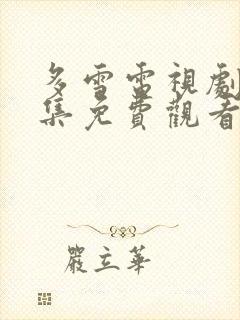 多雪雷視劇
集免費觀看
嚴立華